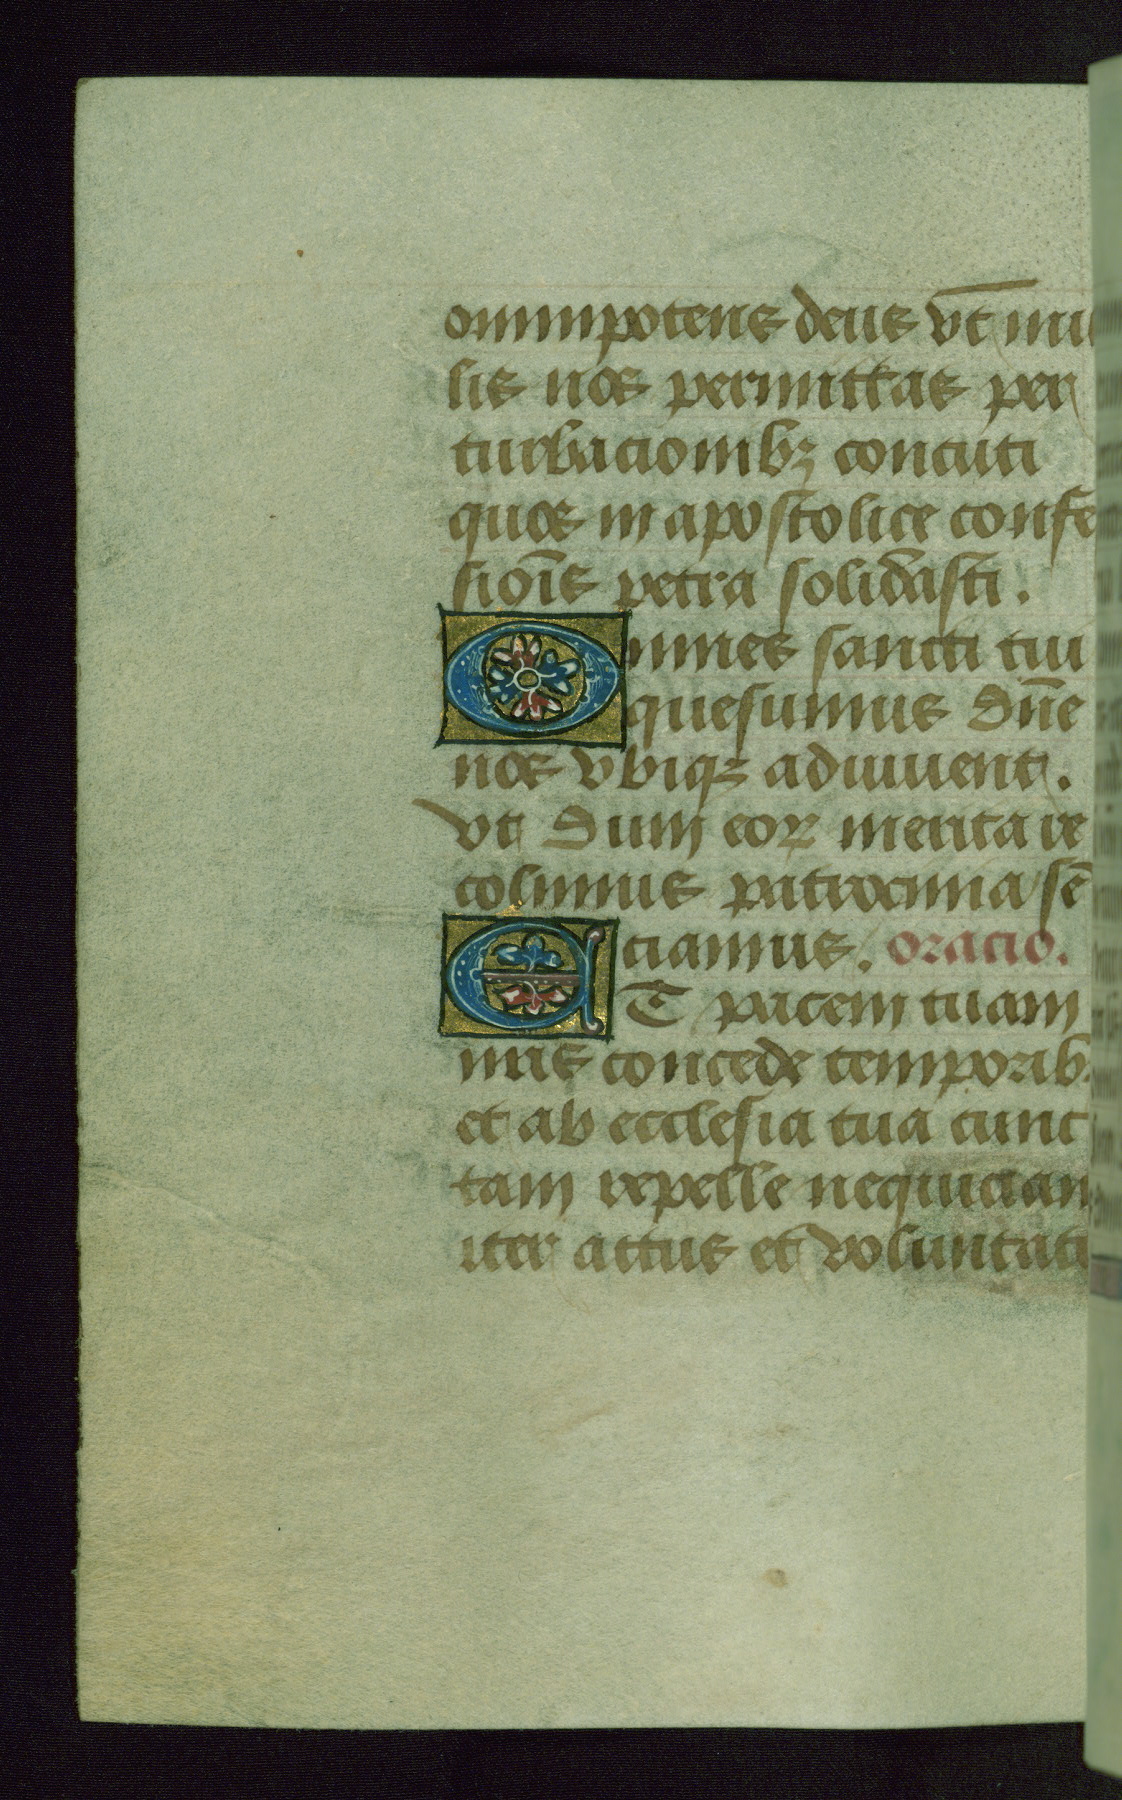 omnipotens deus vt̄ nul
lis nos permittas per
turbacionibꝫ concuti
quos in apostolice confes
siōis petra solidasti.
Omnes sancti tui
quesumus dn̄e
nos vbiqꝫ adiuuent.
vt dum eoꝝ merita re
colimus patrocinia sē
ciamus. oracio.
ET pacem tuam
nr̄is concede temporibꝫ
et ab ecclesia tua cunc
tam repelle nequiciam
iter actus et voluntati